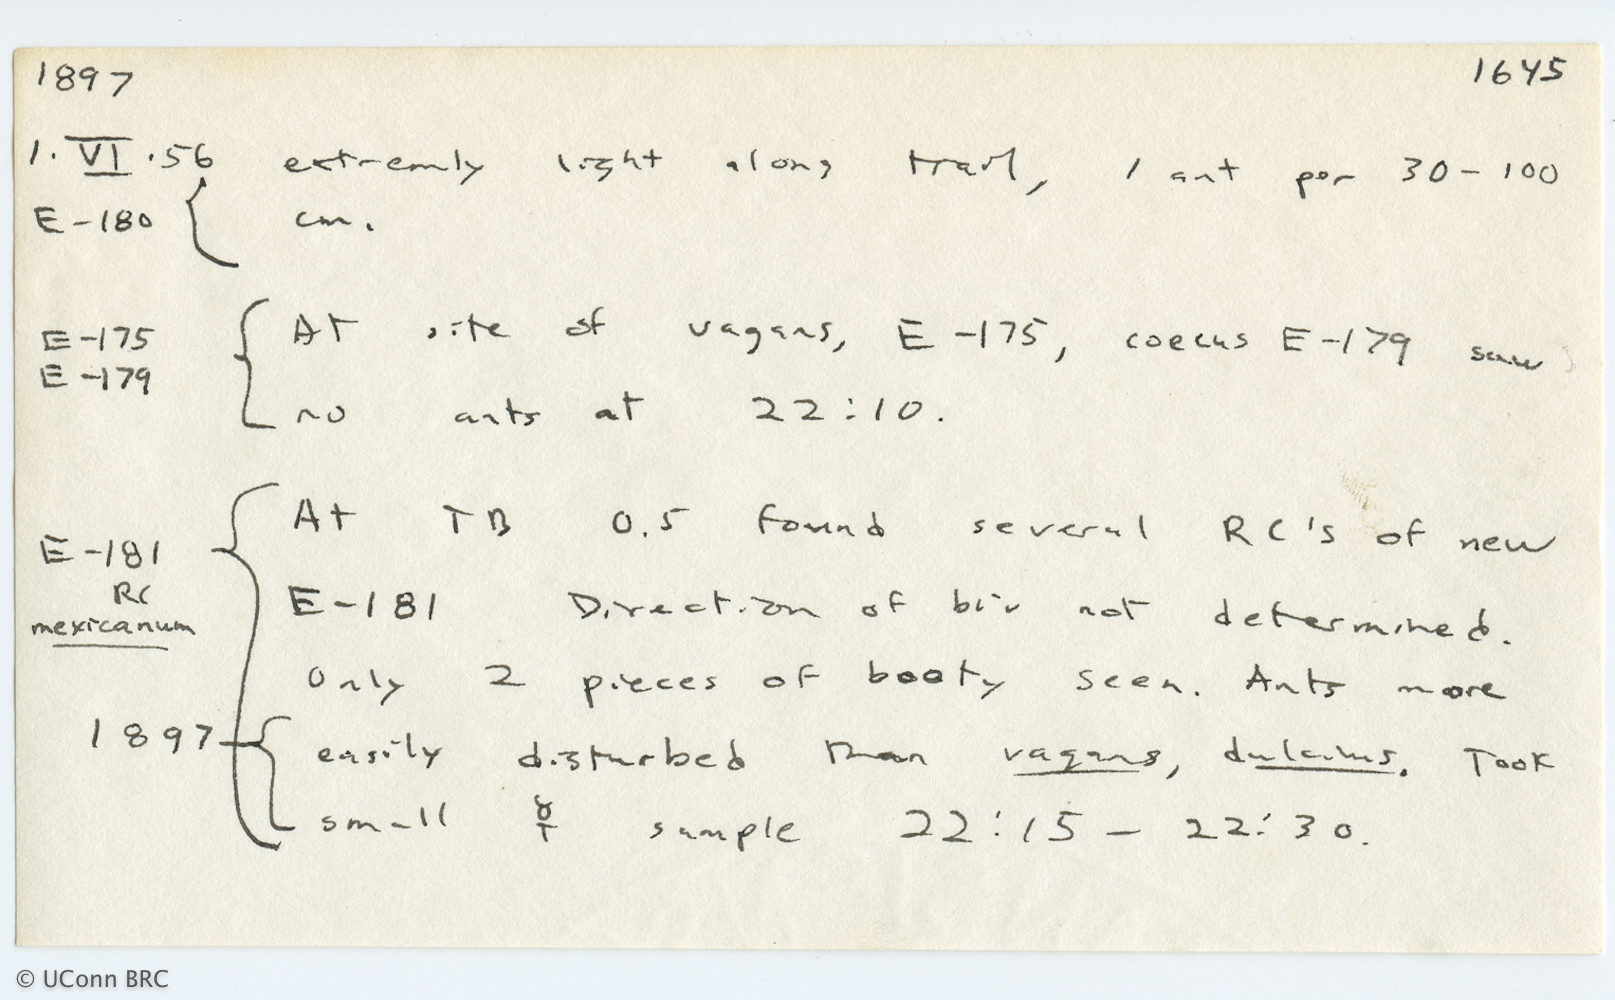 1897 1645
1. VI .56 extremly light along trail, 1 ant per 30-100
E-180 cm.
E-175 At site of vagans, E-175, coecus E-179 saw
E-179 no ants at 22:10.
At TB 0.5 found several RC's of new
E-181 RC mexicanum E-181 Direction of biv not determined.
Only 2 pieces of booty seen. Ants more
1897 easily disturbed than vagans, dulcius. Took
small ☿ sample 22:15 - 22:30.
© UConn BRC